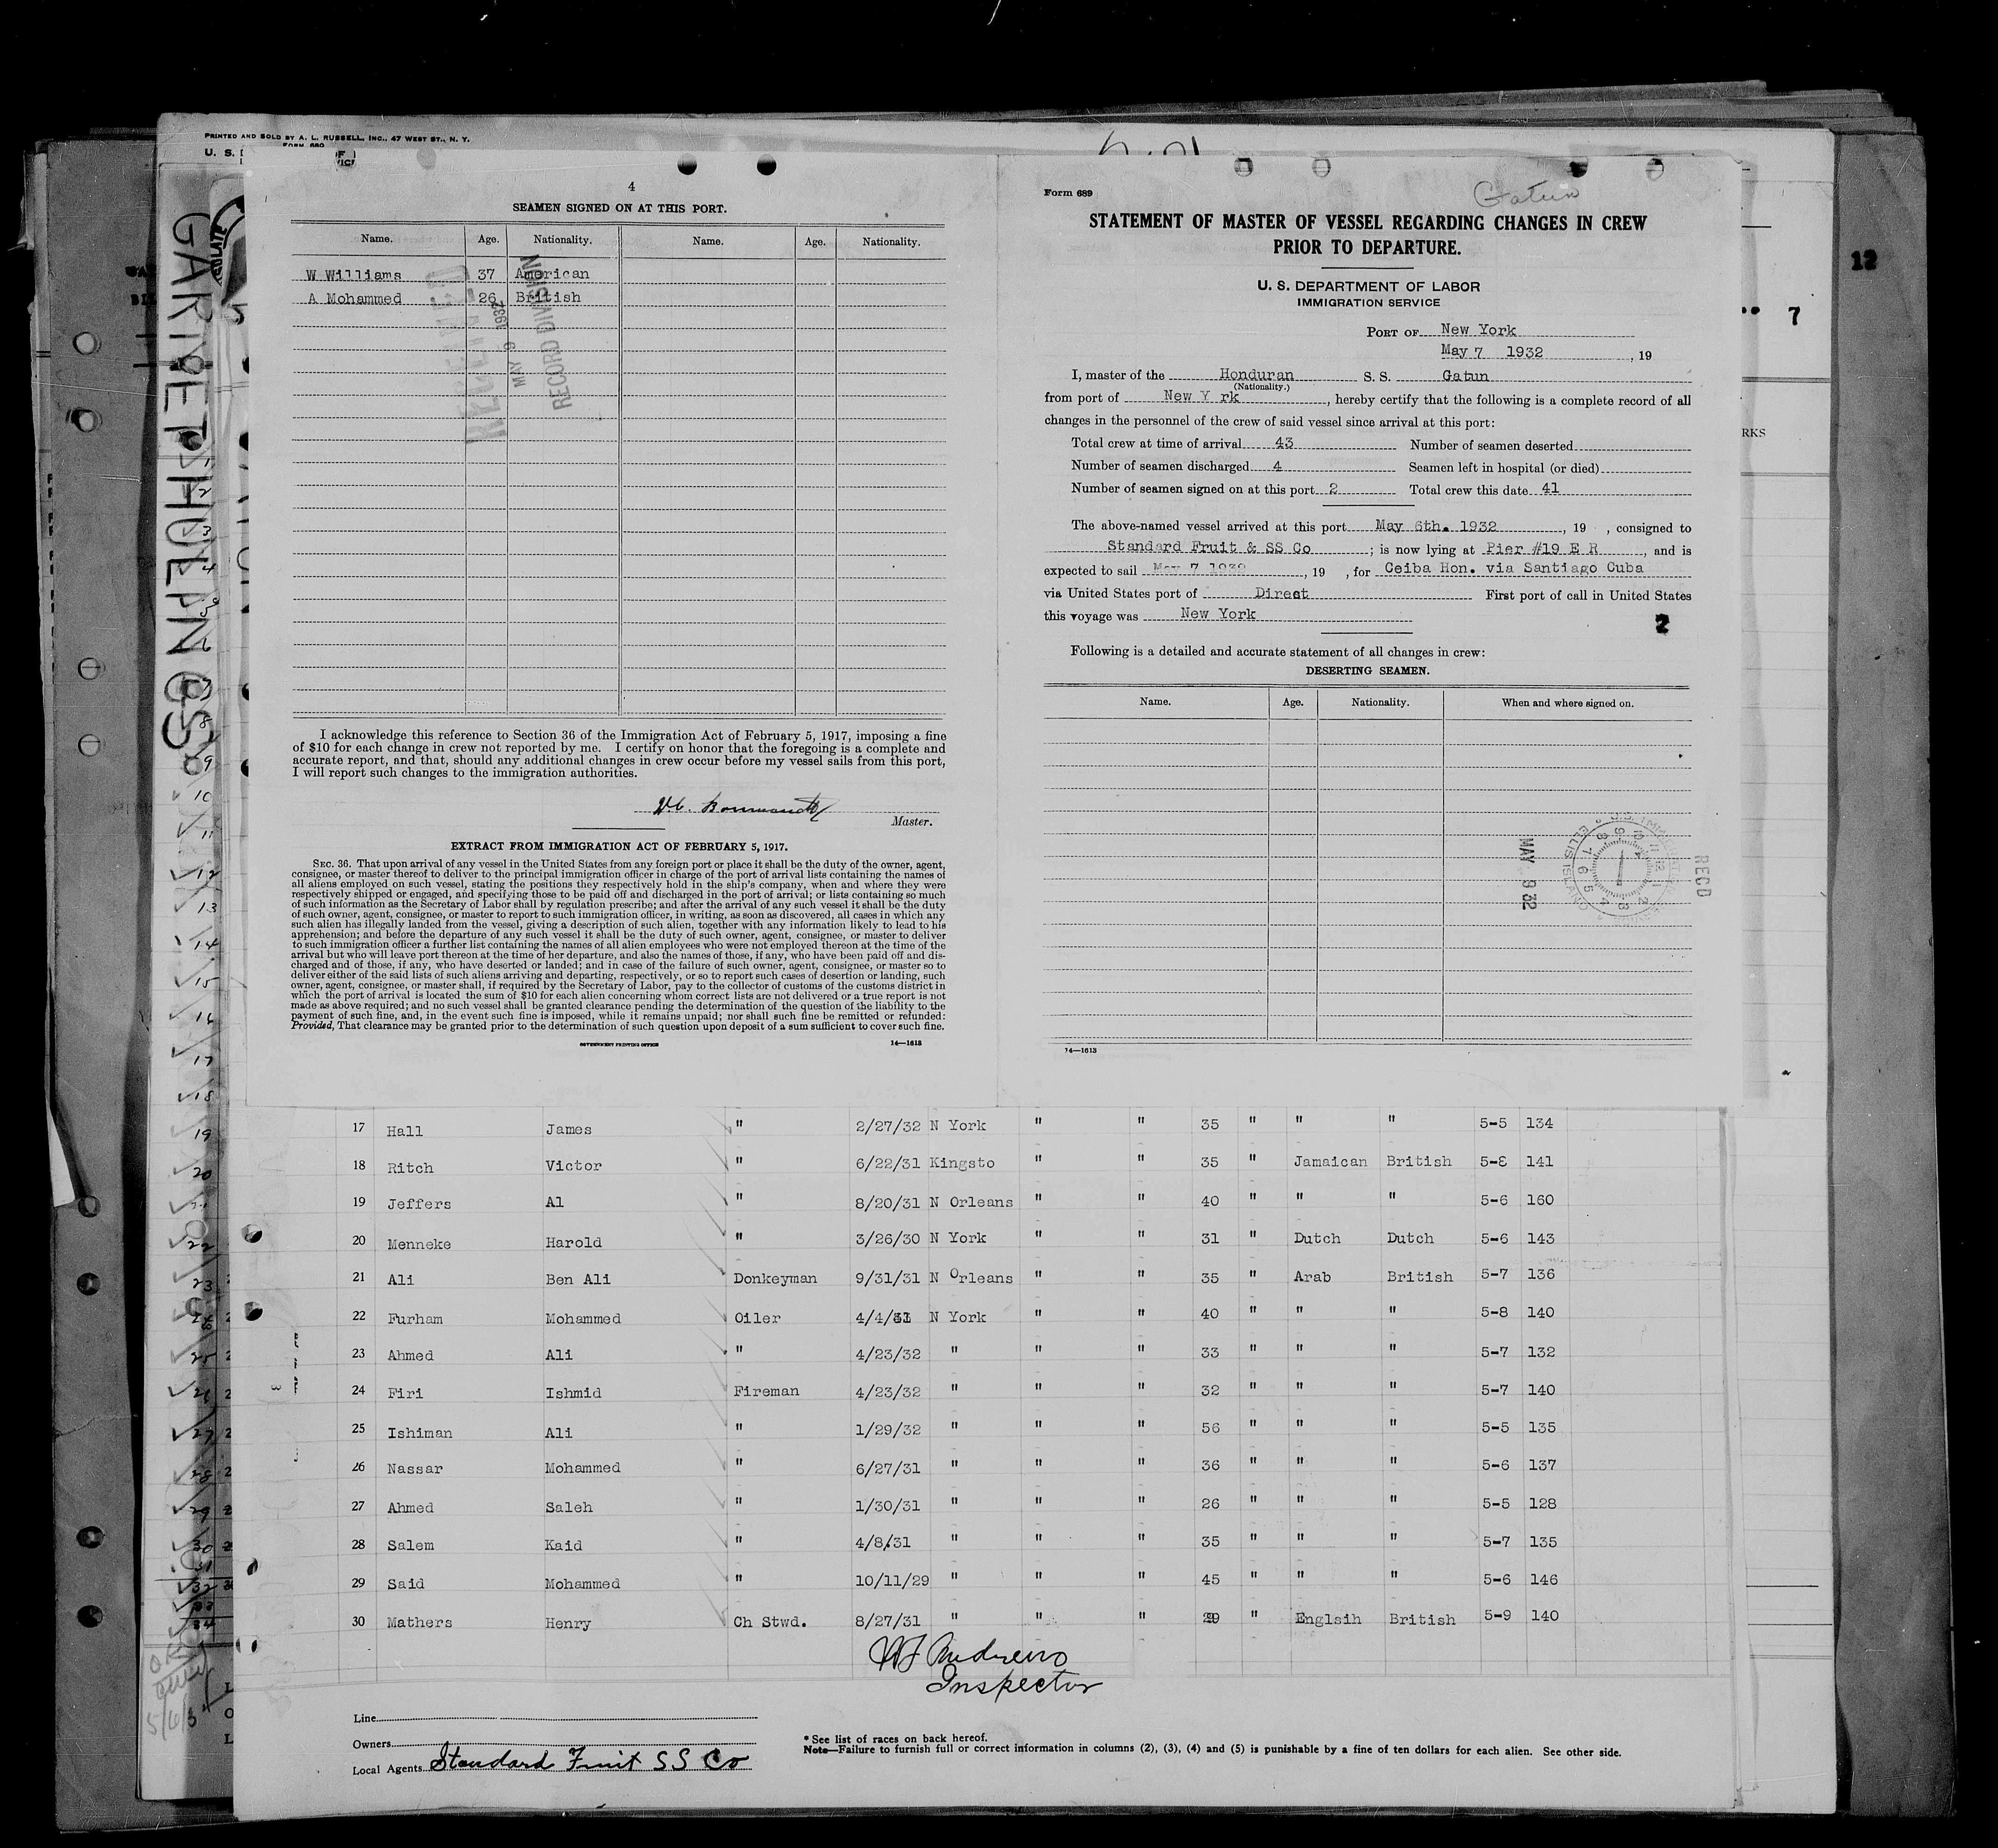 PRINTED AND SOLD BY A. L. RUSSELL, INC., 47 WEST ST., N. Y.
FORM 680
U. S.
4
SEAMEN SIGNED ON AT THIS PORT.
Name. Age. Nationality. Name. Age. Nationality.
W Williams 37 American
A Mohammed 26 British
RECEIVED
MAY 9 1932
RECORD DIVISION
I acknowledge this reference to Section 36 of the Immigration Act of February 5, 1917, imposing a fine
of $10 for each change in crew not reported by me. I certify on honor that the foregoing is a complete and
accurate report, and that, should any additional changes in crew occur before my vessel sails from this port,
I will report such changes to the immigration authorities.
Master.
EXTRACT FROM IMMIGRATION ACT OF FEBRUARY 5, 1917.
SEC. 36. That upon arrival of any vessel in the United States from any foreign port or place it shall be the duty of the owner, agent,
consignee, or master thereof to deliver to the principal immigration officer in charge of the port of arrival lists containing the names of
all aliens employed on such vessel, stating the positions they respectively hold in the ship's company, when and where they were
respectively shipped or engaged, and specifying those to be paid off and discharged in the port of arrival; or lists containing so much
of such information as the Secretary of Labor shall by regulation prescribe; and after the arrival of any such vessel it shall be the duty
of such owner, agent, consignee, or master to report to such immigration officer, in writing, as soon as discovered, all cases in which any
such alien has illegally landed from the vessel, giving a description of such alien, together with any information likely to lead to his
apprehension; and before the departure of any such vessel it shall be the duty of such owner, agent, consignee, or master to deliver
to such immigration officer a further list containing the names of all alien employees who were not employed thereon at the time of the
arrival but who will leave port thereon at the time of her departure, and also the names of those, if any, who have been paid off and dis-
charged and of those, if any, who have deserted or landed; and in case of the failure of such owner, agent, consignee, or master so to
deliver either of the said lists of such aliens arriving and departing, respectively, or so to report such cases of desertion or landing, such
owner, agent, consignee, or master shall, if required by the Secretary of Labor, pay to the collector of customs of the customs district in
which the port of arrival is located the sum of $10 for each alien concerning whom correct lists are not delivered or a true report is not
made as above required; and no such vessel shall be granted clearance pending the determination of the question of the liability to the
payment of such fine, and, in the event such fine is imposed, while it remains unpaid; nor shall such fine be remitted or refunded:
Provided, That clearance may be granted prior to the determination of such question upon deposit of a sum sufficient to cover such fine.
GOVERNMENT PRINTING OFFICE 14—1613
Form 689
Gatun
STATEMENT OF MASTER OF VESSEL REGARDING CHANGES IN CREW
PRIOR TO DEPARTURE.
U. S. DEPARTMENT OF LABOR
IMMIGRATION SERVICE
PORT OF New York
May 7 1932, 19
I, master of the Honduran S. S. Gatun
(Nationality.)
from port of New Y rk, hereby certify that the following is a complete record of all
changes in the personnel of the crew of said vessel since arrival at this port:
Total crew at time of arrival 43 Number of seamen deserted
Number of seamen discharged 4 Seamen left in hospital (or died)
Number of seamen signed on at this port 2 Total crew this date 41
The above-named vessel arrived at this port May 6th. 1932, 19 , consigned to
Standard Fruit & SS Co; is now lying at Pier #19 E R, and is
expected to sail May 7 1932, 19 , for Ceiba Hon. via Santiago Cuba
via United States port of Direct First port of call in United States
this voyage was New York
2
Following is a detailed and accurate statement of all changes in crew:
DESERTING SEAMEN.
Name. Age. Nationality. When and where signed on.
RECD
MAY 9 32
ELLIS ISLAND
14—1613
12
7
RKS
17 Hall James " 2/27/32 N York " " 35 " " " 5-5 134
18 Ritch Victor " 6/22/31 Kingsto " " 35 " Jamaican British 5-8 141
19 Jeffers Al " 8/20/31 N Orleans " " 40 " " " 5-6 160
20 Menneke Harold " 3/26/30 N York " " 31 " Dutch Dutch 5-6 143
21 Ali Ben Ali Donkeyman 9/31/31 N Orleans " " 35 " Arab British 5-7 136
22 Furham Mohammed Oiler 4/4/31 N York " " 40 " " " 5-8 140
23 Ahmed Ali " 4/23/32 " " " 33 " " " 5-7 132
24 Firi Ishmid Fireman 4/23/32 " " " 32 " " " 5-7 140
25 Ishiman Ali " 1/29/32 " " " 56 " " " 5-5 135
26 Nassar Mohammed " 6/27/31 " " " 36 " " " 5-6 137
27 Ahmed Saleh " 1/30/31 " " " 26 " " " 5-5 128
28 Salem Kaid " 4/8/31 " " " 35 " " " 5-7 135
29 Said Mohammed " 10/11/29 " " " 45 " " " 5-6 146
30 Mathers Henry Ch Stwd. 8/27/31 " " " 29 " Englsih British 5-9 140
Inspector
Line
Owners
Local Agents Standard Fruit S S Co
* See list of races on back hereof.
Note—Failure to furnish full or correct information in columns (2), (3), (4) and (5) is punishable by a fine of ten dollars for each alien. See other side.